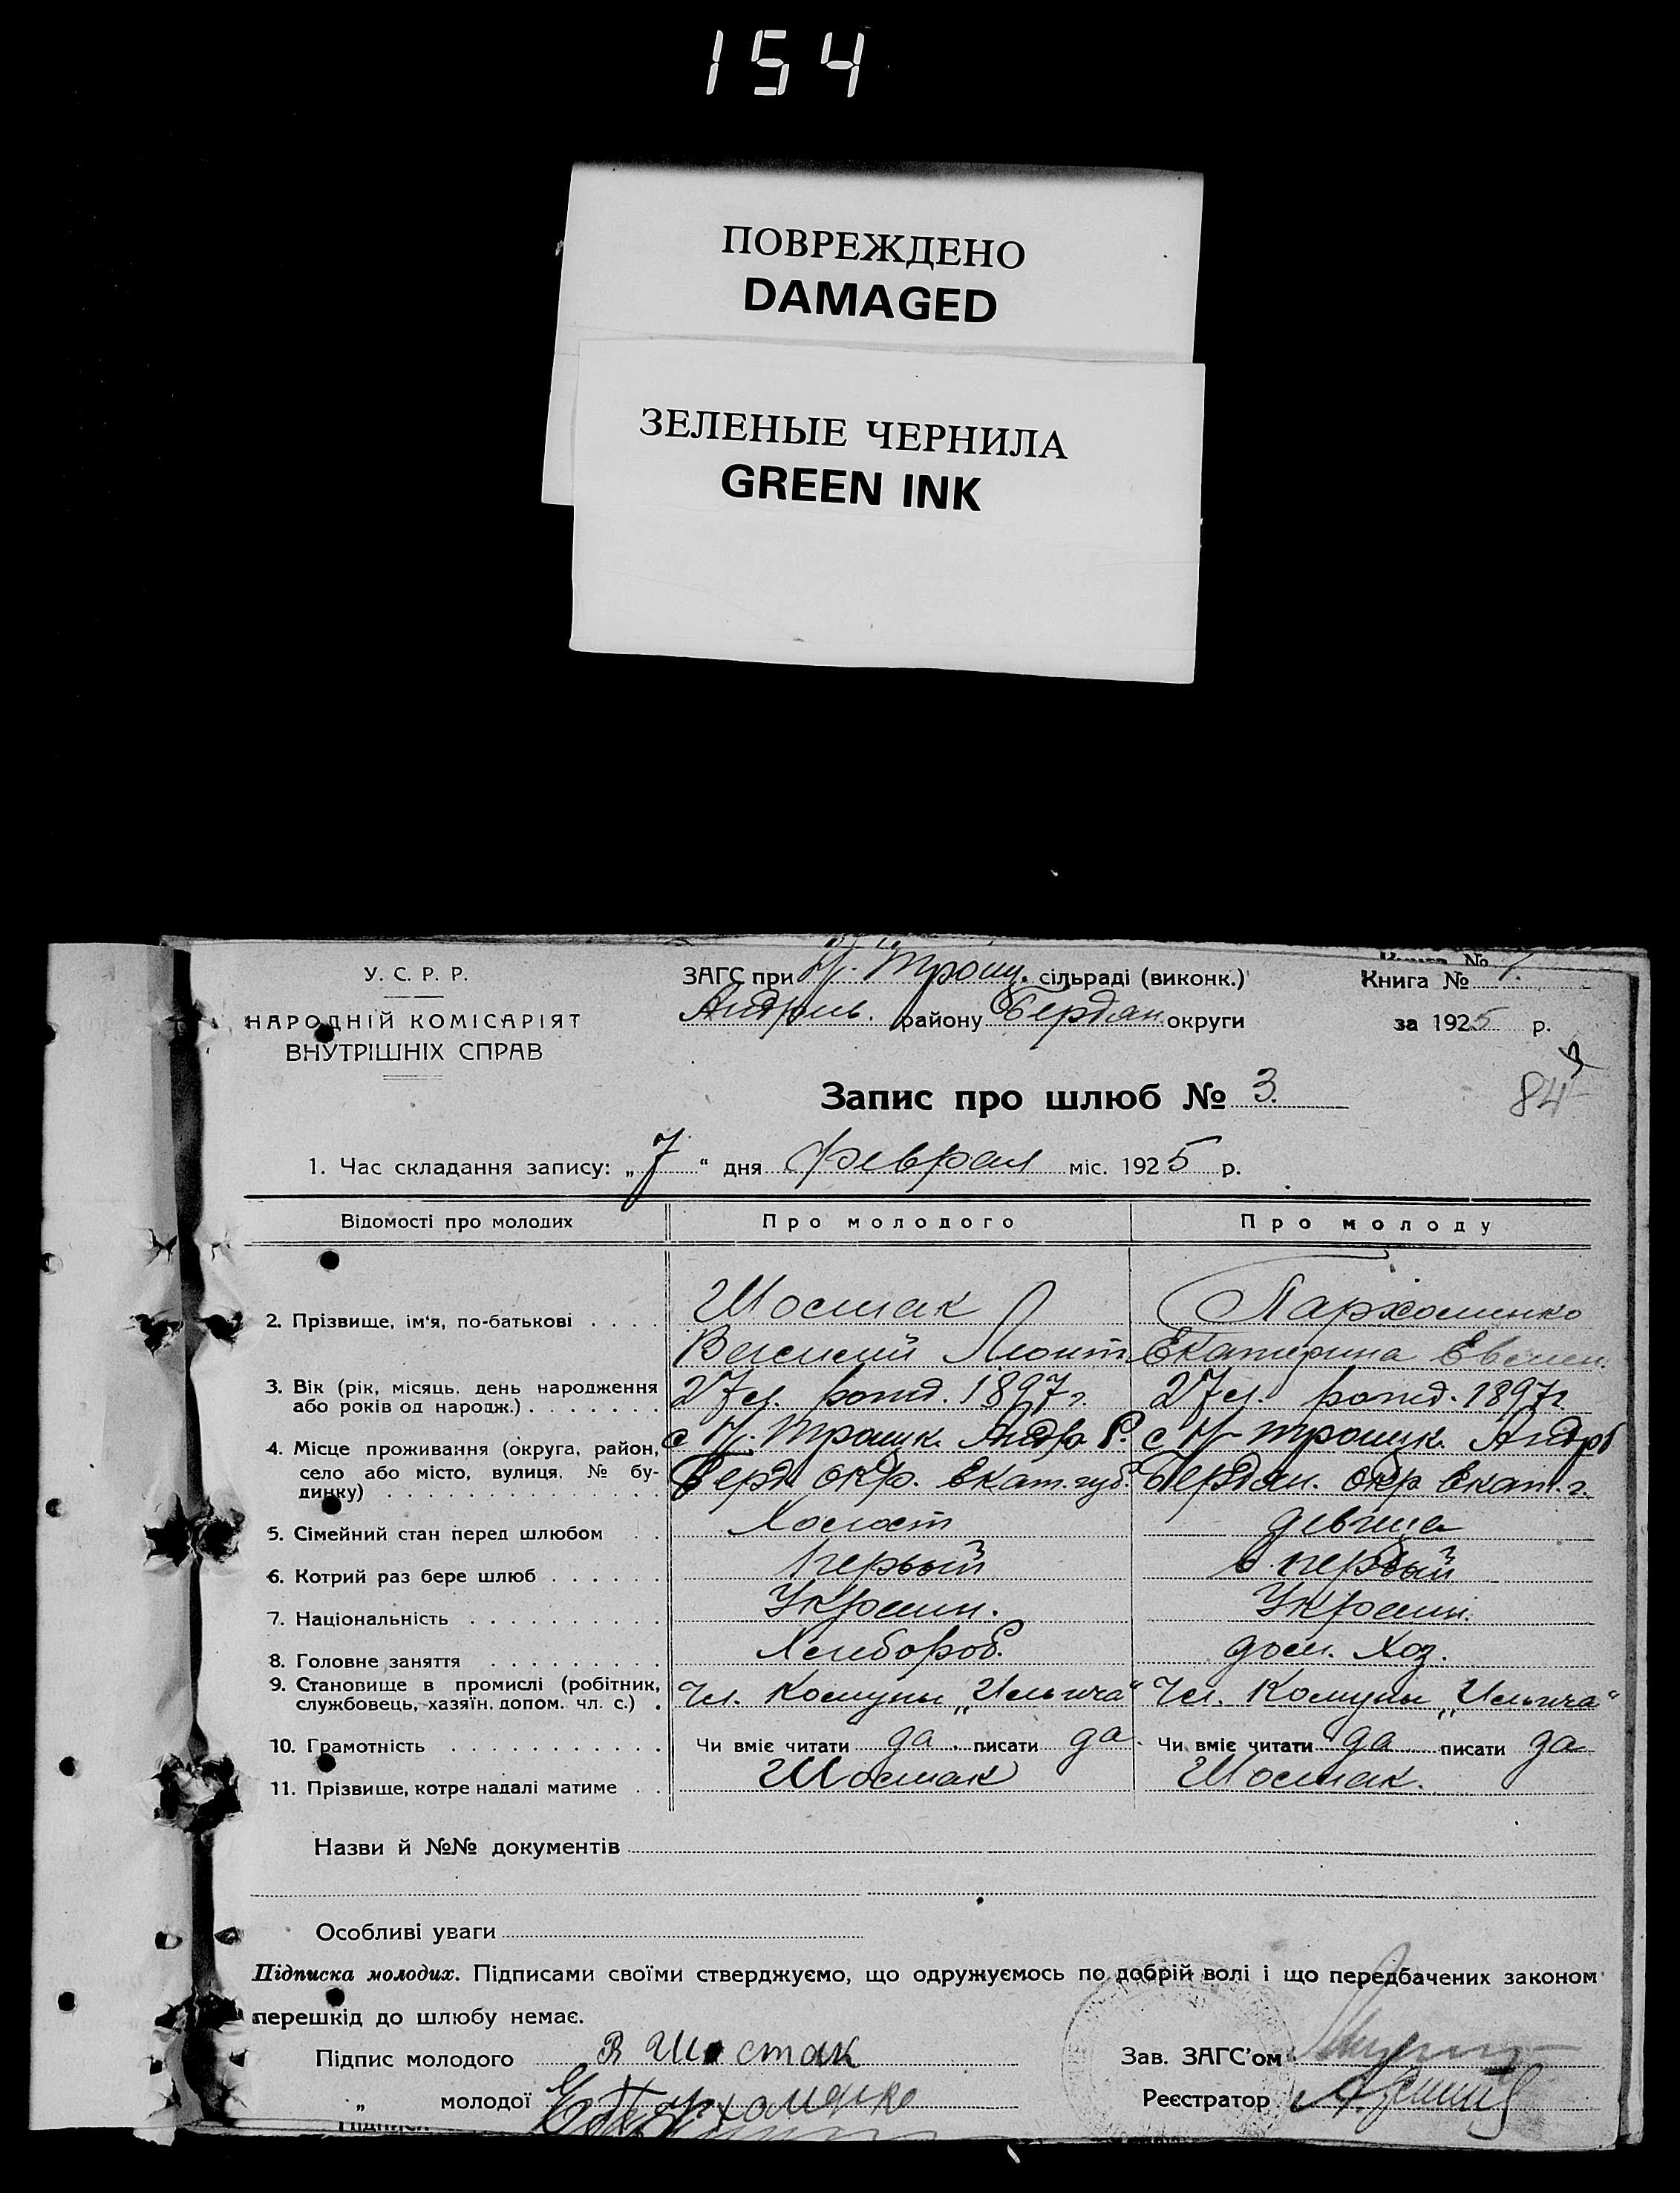 154
ПОВРЕЖДЕНО
DAMAGED
ЗЕЛЕНЫЕ ЧЕРНИЛА
GREEN INK
Книга №
У. С. Р. Р.
НАРОДНІЙ КОМІСАРІЯТ
ВНУТРІШНІХ СПРАВ
ЗАГС при Н. Троиц. сільраді (виконк.)
Андрив. району Бердян. округи
Книга № 1.
за 1925 р.
84
Запис про шлюб № 3.
1. Час складання запису: „7" дня Феврал міс. 1925 р.
Відомості про молодих Про молодого Про молоду
2. Прізвище, ім'я, по-батькові . . . . Шостак Пархоменко
Василий Екатерина Евсеен.
3. Вік (рік, місяць, день народження 27 л. рожд. 1897 г. 27 л. рожд. 1897 г
або років од народж.) . . . . . . .
4. Місце проживання (округа, район, с Н. Троицк. Андр Р. с Н Троицк. Андр
село або місто, вулиця, № бу- Берд. окр. Екат. губ. Бердян. окр Екат. г.
динку) . . . . . . . . . . . . . .
5. Сімейний стан перед шлюбом . . Холост девица
6. Котрий раз бере шлюб . . . . . . первый в первый
7. Національність . . . . . . . . . . Украин. Украин.
8. Головне заняття . . . . . . . . . Хлебороб. дом. Хоз.
9. Становище в промислі (робітник, Чл. Комуны „Ильича" Чл. Комуны „Ильича"
службовець, хазяїн, допом. чл. с.) .
10. Грамотність . . . . . . . . . . . Чи вміє читати да. писати да. Чи вміє читати да писати да
11. Прізвище, котре надалі матиме . . Шостак Шостак.
Назви й №№ документів
Особливі уваги
Підписка молодих. Підписами своїми стверджуємо, що одружуємось по добрій волі і що передбачених законом
перешкід до шлюбу немає.
Підпис молодого В Шостак Зав. ЗАГС'ом
„ молодої Е Пархоменко Реєстратор